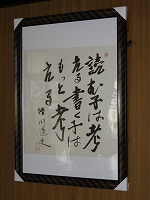 読む子は考
える書く子は
もっと考
える